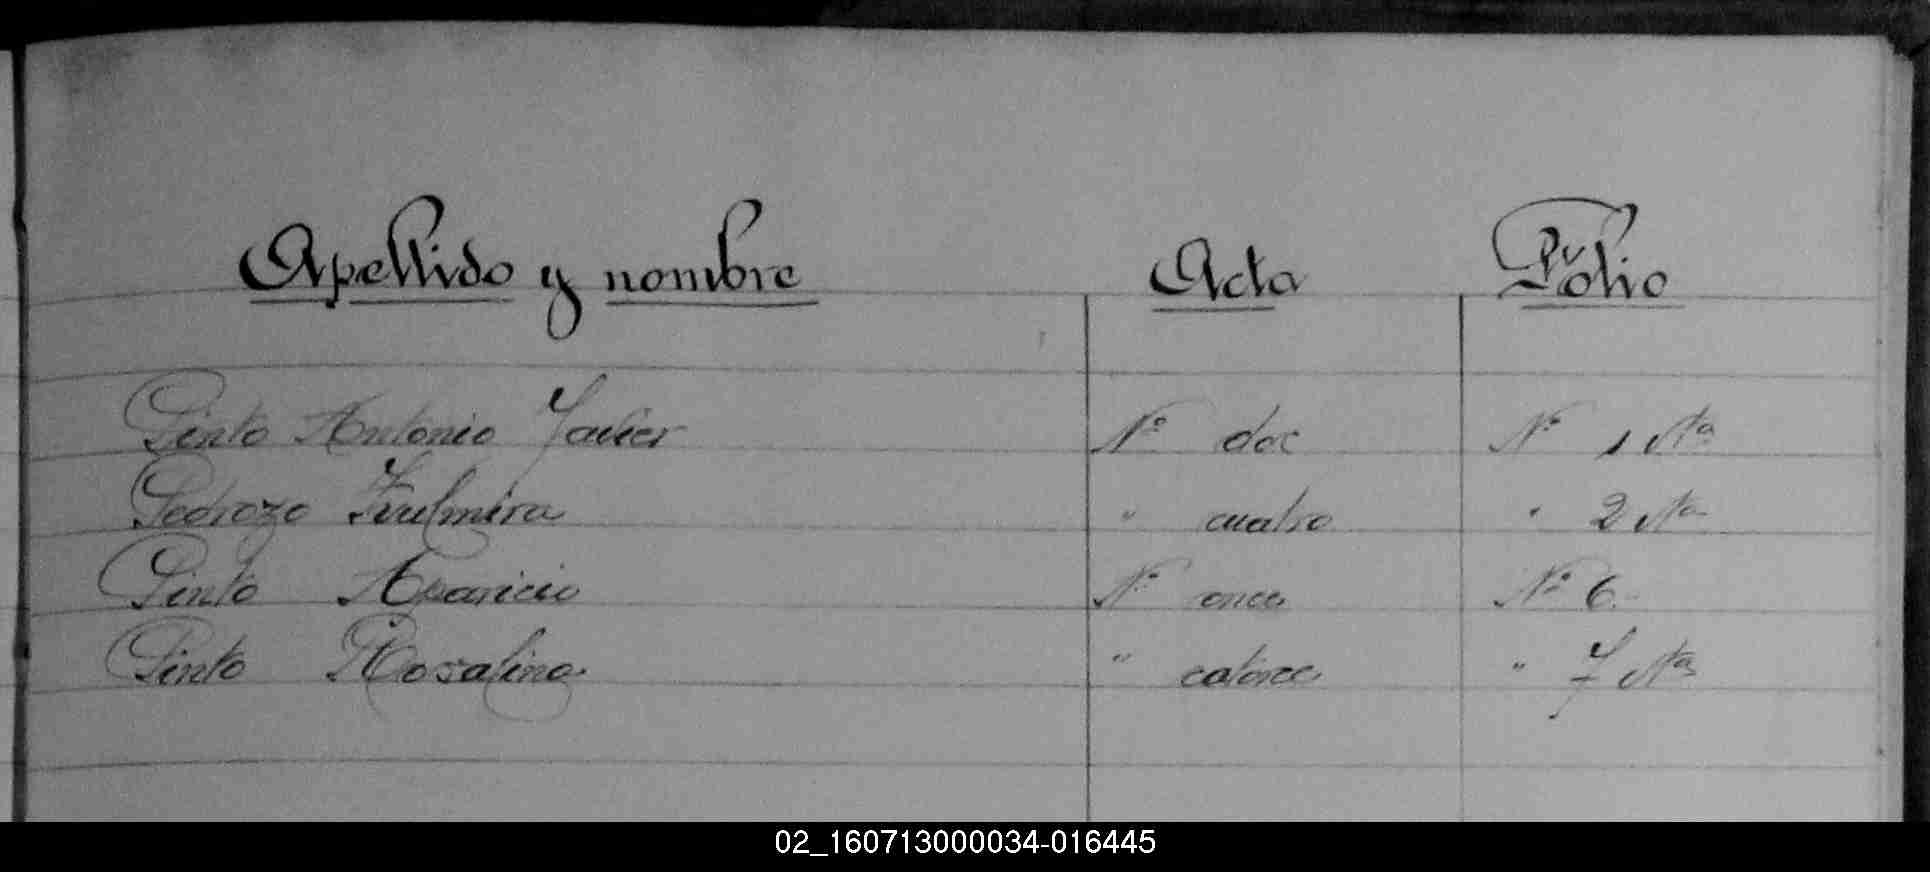 Apellido y nombre Acta Folio
Pinto Antonio Javier Nº dos Nº 1 Vta
Pedrozo Zulmira " cuatro " 2 Vta
Pinto Aparicio Nº once Nº 6.
Pinto Rosalino " catorce " 7 Vta
02_160713000034-016445